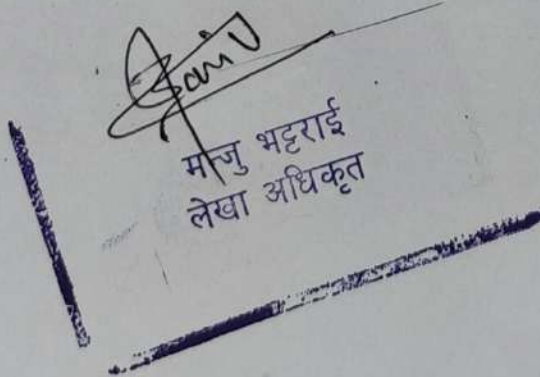 मञ्जु भट्टराई
लेखा अधिकृत